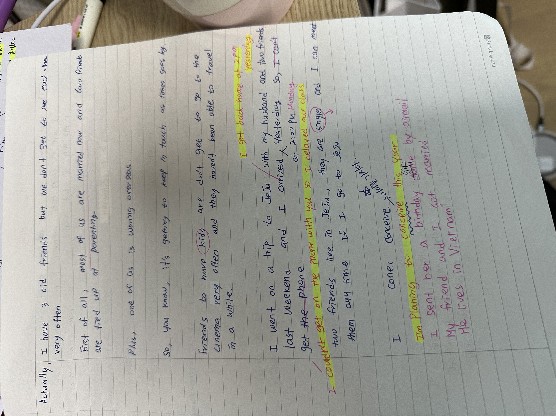 Actually, I have 3 old friends but we don't see
very often
First of all, most of us are married now and two friends
are tied up at parenting.
Plus, one of us is working overseas
So, you know, it's getting to keep in touch as times goes by
Friends to have kids are don't get to go to the
cinemas very often and they haven't been able to travel
in a while.
I got back home at 2 pm
yesterday
I went on a trip to Jeju with my husband and two friends
last weekend and I arrived yesterday so, I can't
get the phone
I couldn't get on the phone with you so I
two friends live in Jeju, they are single and I can meet
them any time if I go to Jeju
I can conceive
I'm planing to conceive this year
I sent her a birthday by email
My friend and I got married
He lives in Vietnam